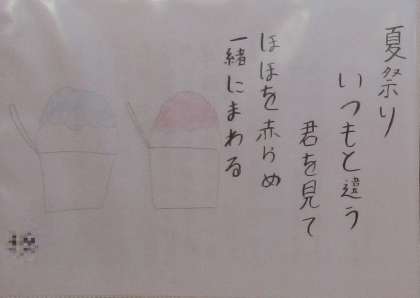 夏祭り
いつもと違う
君を見て
ほほを赤らめ
一緒にまわる